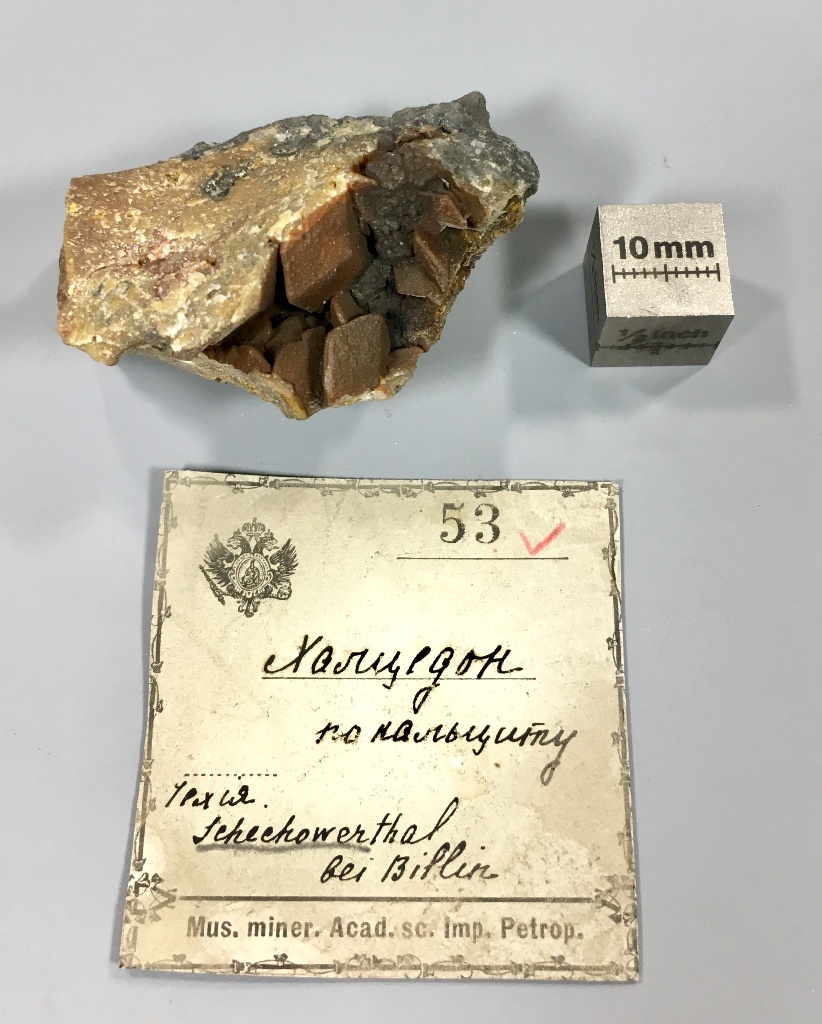 10 mm
1/2 inch
53
Халцедон
по кальциту
Чехія.
Schechowerthal
bei Billin
Mus. miner. Acad. sc. Imp. Petrop.